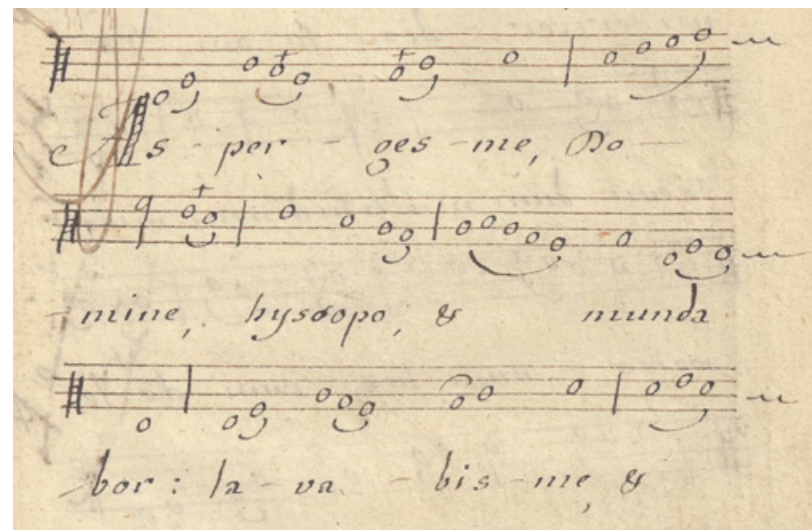 As - per - ges - me, Do -
- mine, hyssopo, & munda
- bor: la - va - bis - me, &